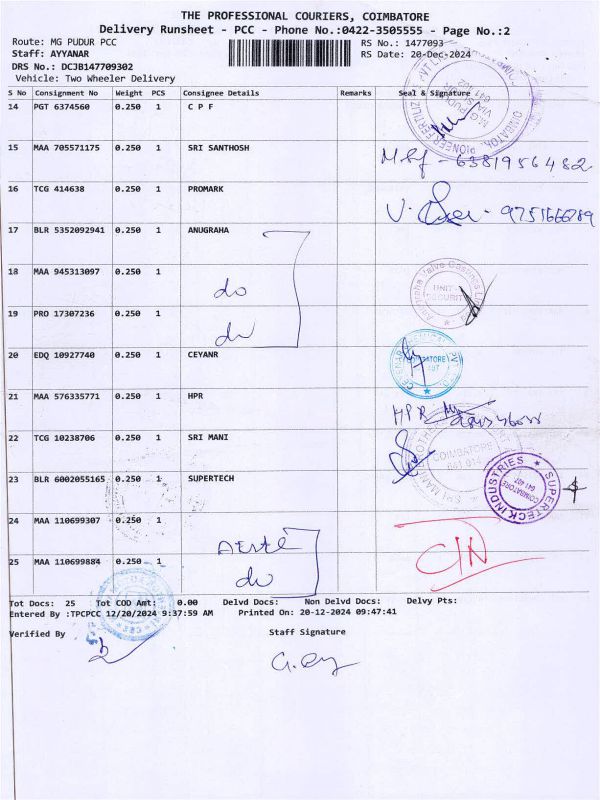 THE PROFESSIONAL COURIERS, COIMBATORE
Delivery Runsheet - PCC - Phone No.:0422-3505555 - Page No.:2
Route: MG PUDUR PCC
RS No.: 1477093
Staff: AYYANAR
RS Date: 20-Dec-2024
DRS No.: DCJB147709302
Vehicle: Two Wheeler Delivery
S No Consignment No Weight PCS Consignee Details Remarks Seal & Signature
14 PGT 6374560 0.250 1 C P F
15 MAA 705571175 0.250 1 SRI SANTHOSH 6381956482
16 TCG 414638 0.250 1 PROMARK 9751666789
17 BLR 5352092941 0.250 1 ANUGRAHA
18 MAA 945313097 0.250 1 do
19 PRO 17307236 0.250 1 do
20 EDQ 10927740 0.250 1 CEYANR
21 MAA 576335771 0.250 1 HPR HPR
22 TCG 10238706 0.250 1 SRI MANI
23 BLR 6002055165 0.250 1 SUPERTECH
SUPERTECK INDUSTRIES
COIMBATORE
641 407
24 MAA 110699307 0.250 1
25 MAA 110699884 0.250 1 do
Tot Docs: 25 Tot COD Amt: 0.00 Delvd Docs: Non Delvd Docs: Delvy Pts:
Entered By :TPCPCC 12/20/2024 9:37:59 AM Printed On: 20-12-2024 09:47:41
Verified By Staff Signature